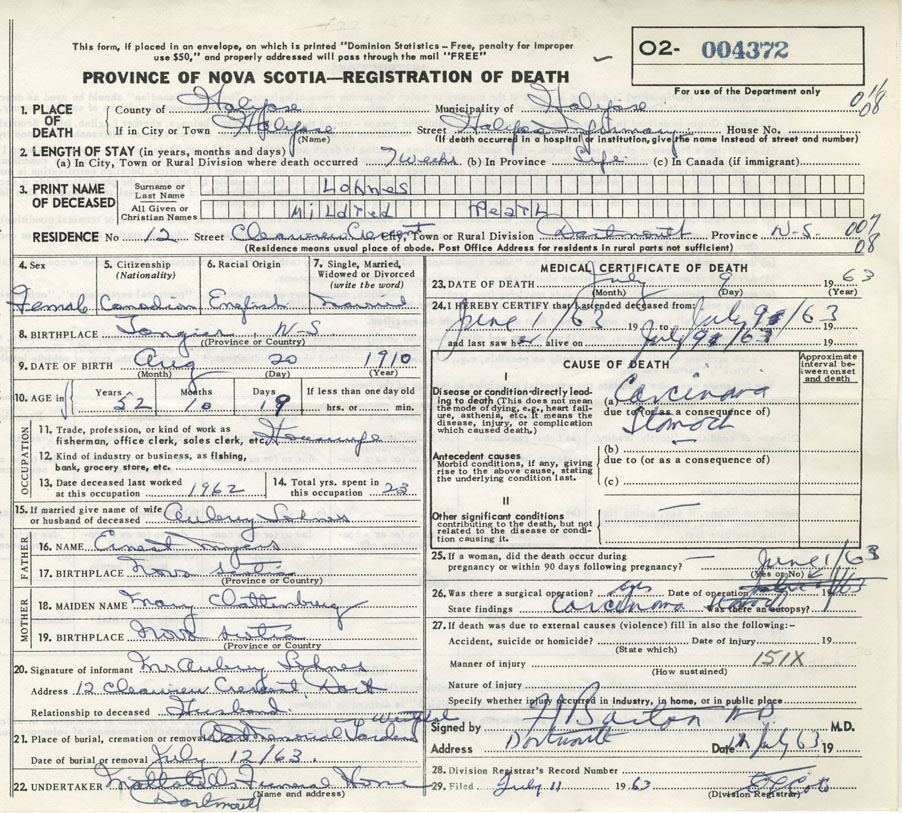 This form, if placed in an envelope, on which is printed "Dominion Statistics – Free, penalty for improper
use $50," and properly addressed will pass through the mail "FREE"
O2- 004372
PROVINCE OF NOVA SCOTIA—REGISTRATION OF DEATH
For use of the Department only
1. PLACE OF DEATH
County of Halifax Municipality of Halifax
If in City or Town Halifax Street Halifax Infirmary House No.
(Name) (If death occurred in a hospital or institution, give the name instead of street and number)
2. LENGTH OF STAY (in years, months and days)
(a) In City, Town or Rural Division where death occurred 7 weeks (b) In Province Life (c) In Canada (if immigrant)
3. PRINT NAME OF DECEASED
Surname or Last Name Lohnes
All Given or Christian Names Mildred Pearl
RESIDENCE No 12 Street Clearview Crescent City, Town or Rural Division Dartmouth Province N-S.
007 08
(Residence means usual place of abode. Post Office Address for residents in rural parts not sufficient)
4. Sex Female
5. Citizenship (Nationality) Canadian
6. Racial Origin English
7. Single, Married, Widowed or Divorced (write the word) Married
8. BIRTHPLACE Tangier, N-S
(Province or Country)
9. DATE OF BIRTH Aug 20 1910
(Month) (Day) (Year)
10. AGE in Years 52 Months 10 Days 19 If less than one day old hrs. or min.
OCCUPATION
11. Trade, profession, or kind of work as fisherman, office clerk, sales clerk, etc. Housewife
12. Kind of industry or business, as fishing, bank, grocery store, etc.
13. Date deceased last worked at this occupation 1962
14. Total yrs. spent in this occupation 23
15. If married give name of wife or husband of deceased Aubrey Lohnes
FATHER
16. NAME Ernest
17. BIRTHPLACE Nova Scotia
(Province or Country)
MOTHER
18. MAIDEN NAME Mary Clattenburg
19. BIRTHPLACE Nova Scotia
(Province or Country)
20. Signature of informant Mr Aubrey Lohnes
Address 12 Clearview Crescent, Dart
Relationship to deceased Husband
21. Place of burial, cremation or removal Memorial Gardens
Date of burial or removal July 12/63.
22. UNDERTAKER Funeral Home
(Name and address)
Dartmouth
MEDICAL CERTIFICATE OF DEATH
23. DATE OF DEATH July 9 1963
(Month) (Day) (Year)
24. I HEREBY CERTIFY that I attended deceased from:
June 1/63 19 to July 9/63 19
and last saw her alive on July 9/63 19
CAUSE OF DEATH
Approximate interval between onset and death
I
Disease or condition directly leading to death (This does not mean the mode of dying, e.g., heart failure, asthenia, etc. It means the disease, injury, or complication which caused death.)
(a) Carcinoma
due to (or as a consequence of)
Stomach
Antecedent causes
Morbid conditions, if any, giving rise to the above cause, stating the underlying condition last.
(b) —
due to (or as a consequence of)
(c)
II
Other significant conditions contributing to the death, but not related to the disease or condition causing it.
—
25. If a woman, did the death occur during pregnancy or within 90 days following pregnancy? —
(Yes or No)
June 1/63
26. Was there a surgical operation? yes Date of operation 19
State findings Carcinoma Stomach Was there an autopsy?
27. If death was due to external causes (violence) fill in also the following:-
Accident, suicide or homicide? Date of injury 19
(State which)
Manner of injury 151X
(How sustained)
Nature of injury
Specify whether injury occurred in industry, in home, or in public place
Signed by Barton M.D. M.D.
Address Dartmouth Date July 63 19
28. Division Registrar's Record Number
29. Filed July 11 1963
(Division Registrar)